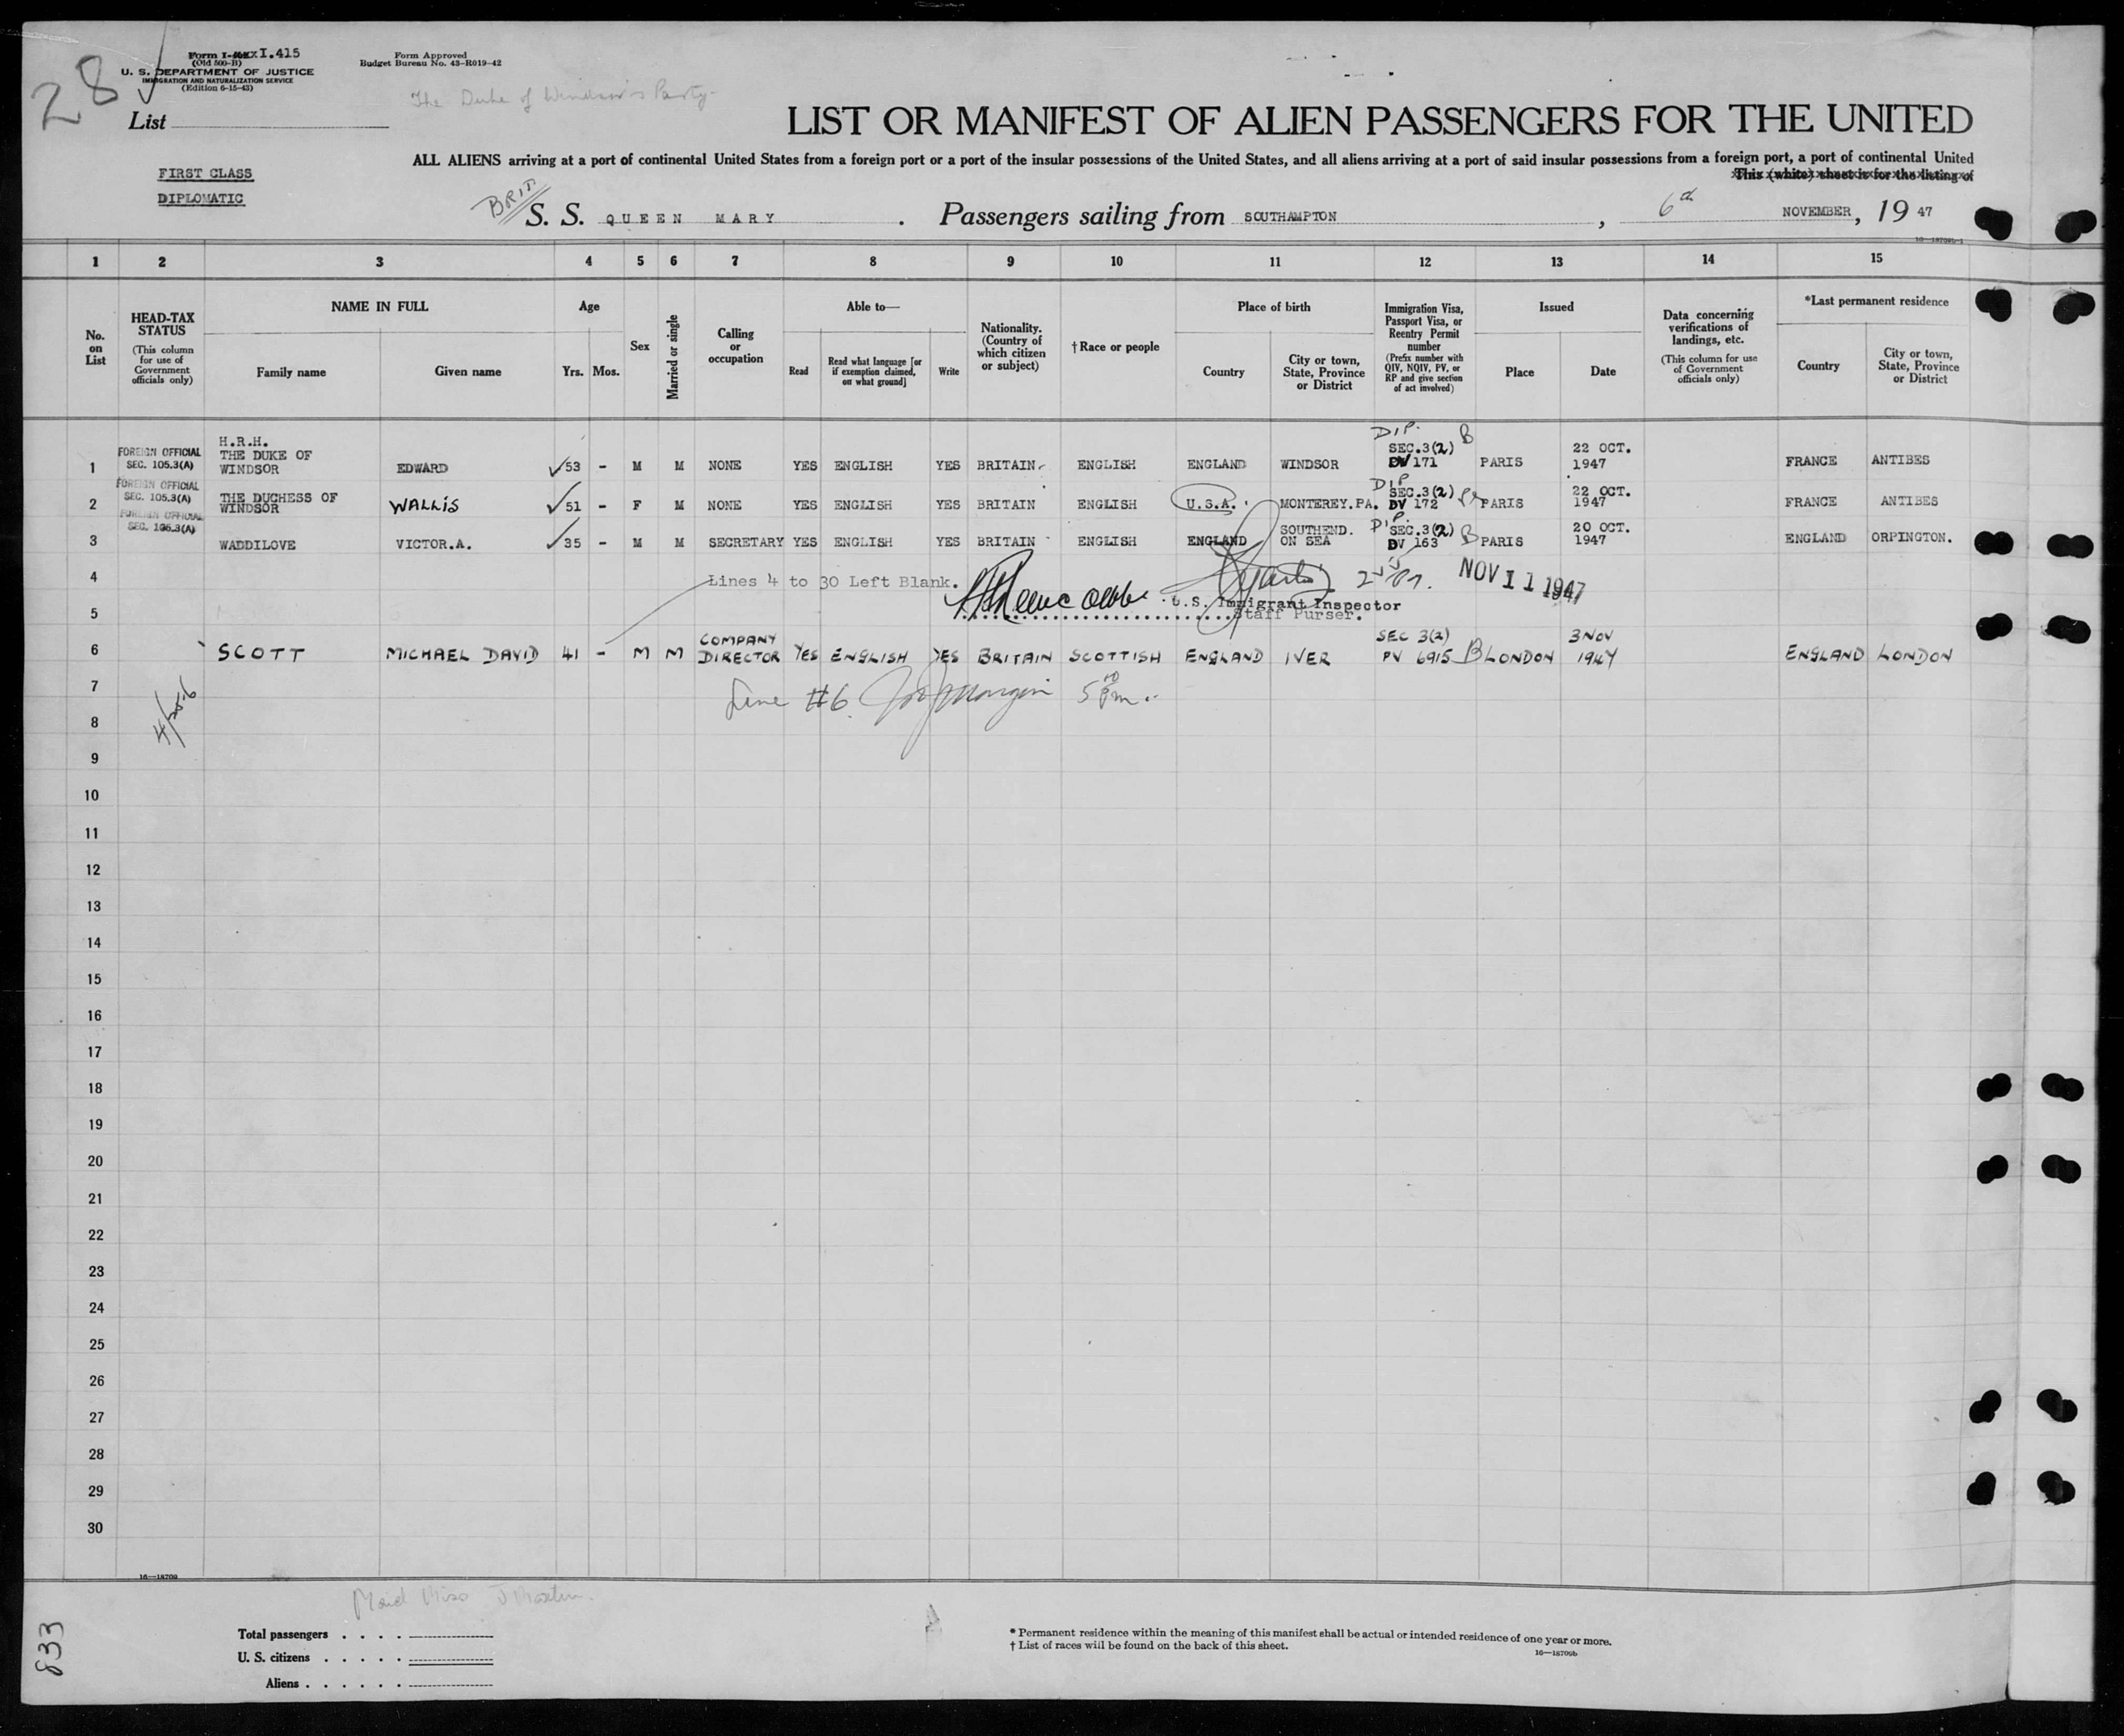 28
Form I-415
(Old 500-B)
U. S. DEPARTMENT OF JUSTICE
IMMIGRATION AND NATURALIZATION SERVICE
(Edition 6-15-43)
Form Approved
Budget Bureau No. 43-R019-42
The Duke of Windsor's Party-
List
LIST OR MANIFEST OF ALIEN PASSENGERS FOR THE UNITED
ALL ALIENS arriving at a port of continental United States from a foreign port or a port of the insular possessions of the United States, and all aliens arriving at a port of said insular possessions from a foreign port, a port of continental United
This (white) sheet is for the listing of
FIRST CLASS
DIPLOMATIC
BRIT
S. S. QUEEN MARY . Passengers sailing from SOUTHAMPTON , 6th NOVEMBER, 19 47
16—18709b-1
1 2 3 4 5 6 7 8 9 10 11 12 13 14 15
No. on List
HEAD-TAX STATUS (This column for use of Government officials only)
NAME IN FULL
Family name
Given name
Age
Yrs. Mos.
Sex
Married or single
Calling or occupation
Able to—
Read
Read what language [or if exemption claimed, on what ground]
Write
Nationality. (Country of which citizen or subject)
†Race or people
Place of birth
Country
City or town, State, Province or District
Immigration Visa, Passport Visa, or Reentry Permit number (Prefix number with QIV, NQIV, PV, or RP and give section of act involved)
Issued
Place
Date
Data concerning verifications of landings, etc. (This column for use of Government officials only)
*Last permanent residence
Country
City or town, State, Province or District
1 FOREIGN OFFICIAL SEC. 105.3(A) H.R.H. THE DUKE OF WINDSOR EDWARD 53 - M M NONE YES ENGLISH YES BRITAIN ENGLISH ENGLAND WINDSOR DIP. SEC.3(2) DV 171 B PARIS 22 OCT. 1947 FRANCE ANTIBES
2 FOREIGN OFFICIAL SEC. 105.3(A) THE DUCHESS OF WINDSOR WALLIS 51 - F M NONE YES ENGLISH YES BRITAIN ENGLISH U.S.A. MONTEREY.PA. DIP SEC.3(2) DV 172 PARIS 22 OCT. 1947 FRANCE ANTIBES
3 FOREIGN OFFICIAL SEC. 105.3(A) WADDILOVE VICTOR.A. 35 - M M SECRETARY YES ENGLISH YES BRITAIN ENGLISH ENGLAND SOUTHEND. ON SEA DIP. SEC.3(2) DV 163 B PARIS 20 OCT. 1947 ENGLAND ORPINGTON.
4 Lines 4 to 30 Left Blank. NOV 11 1947
5 U.S. Immigrant Inspector
Staff Purser.
6 SCOTT MICHAEL DAVID 41 - M M COMPANY DIRECTOR YES ENGLISH YES BRITAIN SCOTTISH ENGLAND IVER SEC 3(2) PV 6915 B LONDON 3 NOV 1947 ENGLAND LONDON
7 Line #6
8
9
10
11
12
13
14
15
16
17
18
19
20
21
22
23
24
25
26
27
28
29
30
16—18709
Maid Miss J Martin.
833
Total passengers . . . .
U. S. citizens . . . . .
Aliens . . . . . .
* Permanent residence within the meaning of this manifest shall be actual or intended residence of one year or more.
† List of races will be found on the back of this sheet.
16—18709b